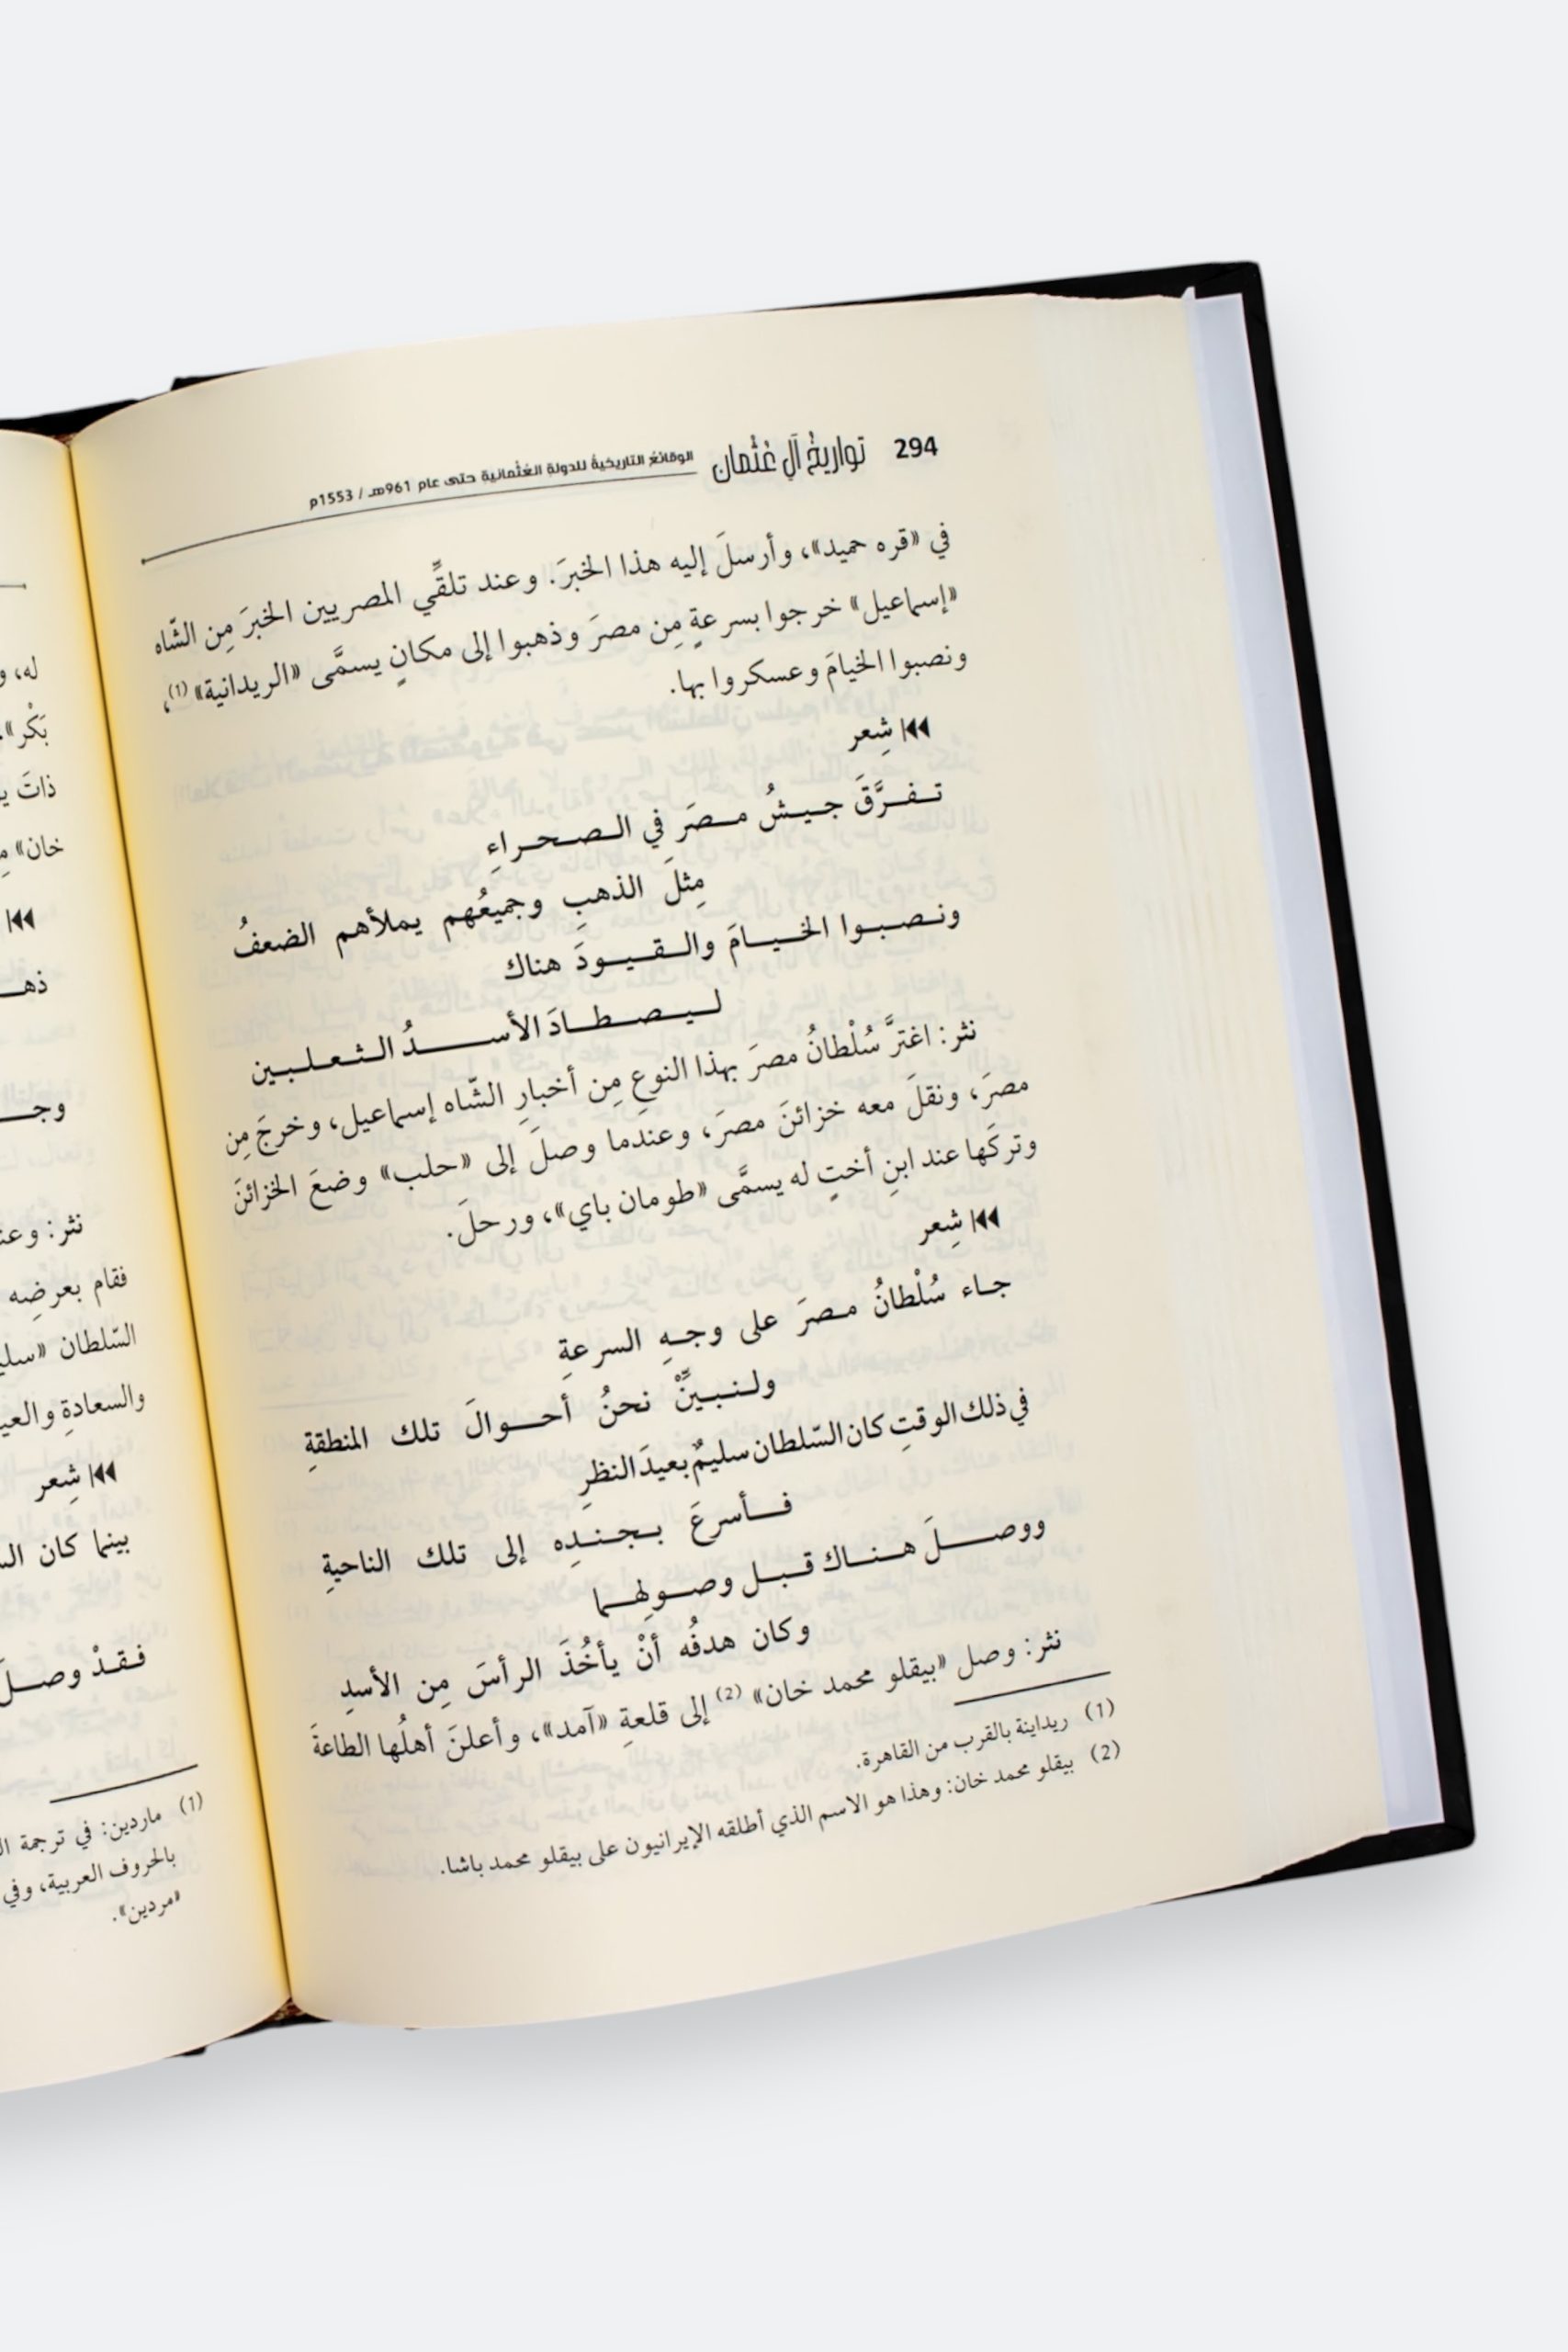 294 تواريخُ آل عُثْمان الوقائعُ التاريخيةُ للدولةِ العُثْمانيةِ حتى عام 961هـ / 1553م
في «قره حميد»، وأرسلَ إليه هذا الخبرَ. وعند تلقِّي المصريين الخبرَ مِن الشّاه
«إسماعيل» خرجوا بسرعةٍ مِن مصرَ وذهبوا إلى مكانٍ يسمَّى «الريدانية» (1)،
ونصبوا الخيامَ وعسكروا بها.
شِعر
تـفـرَّقَ جـيـشُ مـصرَ في الـصـحـراءِ
مِثلَ الذهبِ وجميعُهم يملأهم الضعفُ
ونـصـبـوا الخـيـامَ والـقـيـودَ هناك
لـيـصـطـادَ الأسـدُ الـثـعـلـبـين
نثر: اغترَّ سُلْطانُ مصرَ بهذا النوعِ مِن أخبارِ الشّاه إسماعيل، وخرجَ مِن
مصرَ، ونقلَ معه خزائنَ مصرَ، وعندما وصلَ إلى «حلب» وضعَ الخزائنَ
وتركَها عند ابنِ أختٍ له يسمَّى «طومان باي»، ورحلَ.
شِعر
جـاء سُلْطانُ مـصرَ على وجـهِ السرعةِ
ولـنـبـينِّْ نحنُ أحـوالَ تلك المنطقةِ
في ذلك الوقتِ كان السّلطان سليمٌ بعيدَ النظرِ
فـأسرعَ بـجـنـدِه إلى تلك الناحيةِ
ووصـلَ هـنـاك قـبـل وصـولِهـما
وكان هدفُه أنْ يأخُذَ الرأسَ مِن الأسدِ
نثر: وصل «بيقلو محمد خان» (2) إلى قلعةِ «آمد»، وأعلنَ أهلُها الطاعةَ
(1) ريداينة بالقرب من القاهرة.
(2) بيقلو محمد خان: وهذا هو الاسم الذي أطلقه الإيرانيون على بيقلو محمد باشا.
له،
بَكْر».
ذاتَ
خان»
نثر:
فقام بعرضِه
السّلطان
والسعادةِ
شِعر
بينما كان
فـقـدْ وصـلَ
(1) ماردين: في ترجمة
بالحروف العربية، وفي
«مردين».